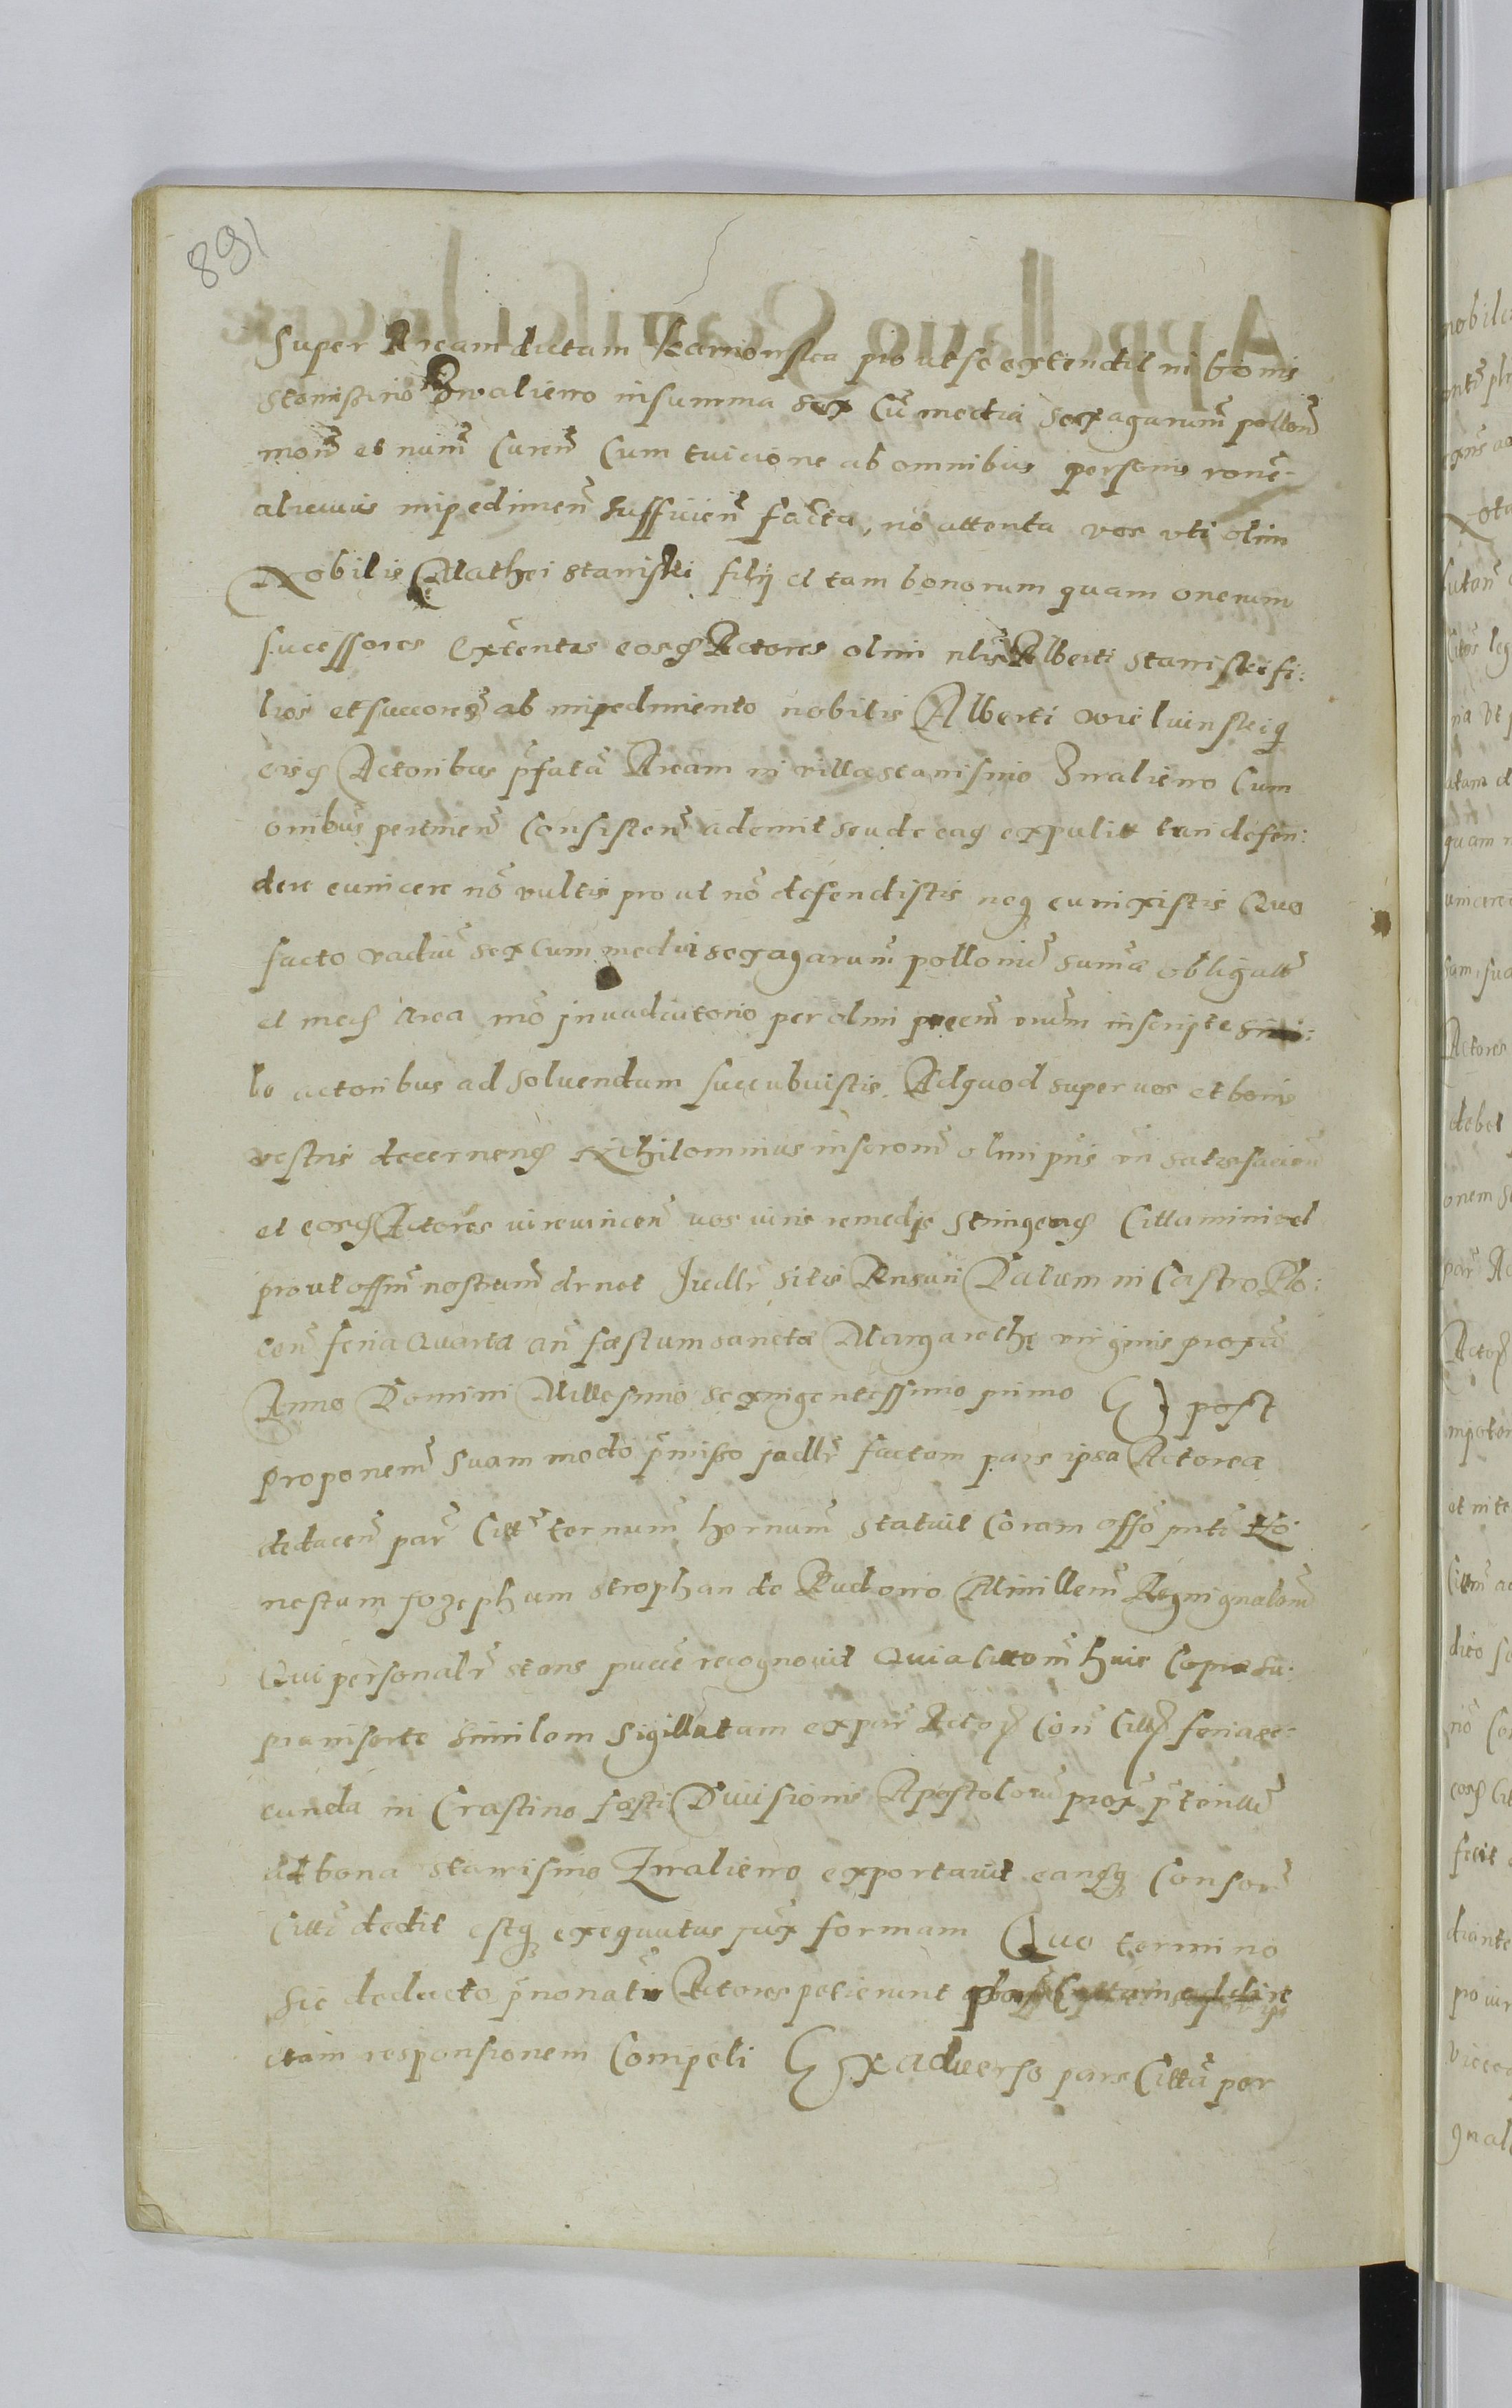 891
super Aream dictam Kamonska pro ut se extendit in bonis
Stanisino Zwalieno in summa sex cũ media sexagarum̃ pollon̄
mon̄ et num̄ curen̄ cum tuicione ab omnibus personis rone
alicuius impedimen̄ sufficien̄ facta, nõ attenta vos uti olim
Nobilis Mathei Staniski filij et tam bonorum quam onerum
successores eosq Actores olim nlis Alberti Staniski fi:
lios et succores ab impedimento nobilis Alberti
eisq Actoribus p̃fatã Aream in villa Stanisino Zwalieno cum
omibus pertinen̄ consisten̄ ademit seu de eaq expulit tueri defen:
dere euincere nõ vultis pro ut nõ defendistis neq euinxistis Quo
facto vadiũ sex cum media sexagarum̃ pollonic̄ sum̃æ obligatt̄
et in eaq Area mõ inuadiatorio per olim inscripte simi:
le actoribus ad soluendum succubuistis. Ad quod super vos et bonis
vestris decernenq Nihilominus inscrom̄ olim satisfacien̄
et eosq Actores euincen̄ vos viris remedijs stringenq Cittamini vel
prout offm̄ nostrum̃ decernet Judlr sitis Rnsuri Datum in Castro Plo:
cen̄ feria Quarta añ festum sanctæ Margarethę virginis proxã
Anno Domini Millesimo sexingentessimo primo Et post
proponem̄ suam modo p̃misso judlr factam pars ipsa Actorea
deducen̄ par̄ citt̄ ternum̃ hornum̃ statuit coram offõ pnti Ho
nestum Jozephum Strophan de Rudowo Ministlem̄ Regni gnalem̄
Qui personalr̄ stans pucē recognouit Quia cittõnem̄ huic copiæ su:
pra inserte similem sigillatam ex par̄ Actoꝝ con̄ Cittꝝ feria se:
cunda in Crastino festi Diuisionis Apostolorũ prox̄ p̃teritã
ad bona Stanisino Zwalieno exportauit eamq Conson̄
Citt̄ dedit estq exequutus jux̄ formam Quo termino
sic deducto p̃nonati Actores petierunt
etam responsionem compeli Ex aduerso pars Cittã per